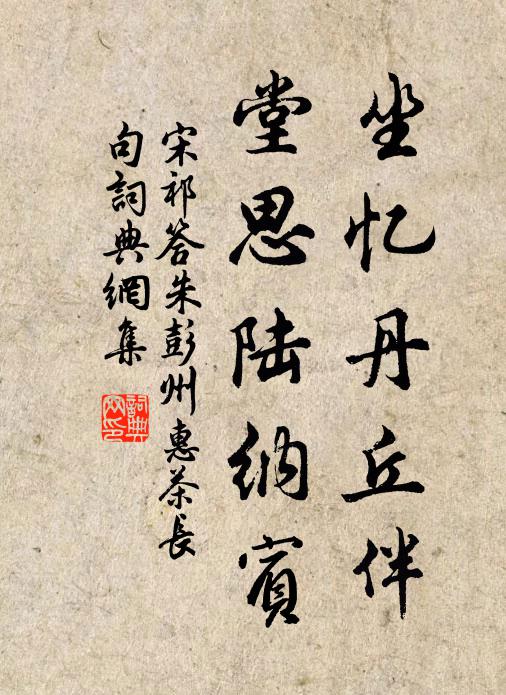 坐忆丹丘伴
堂思陆纳賓
宋祁答朱彭州惠茶長
句詞典網集
詞典网印